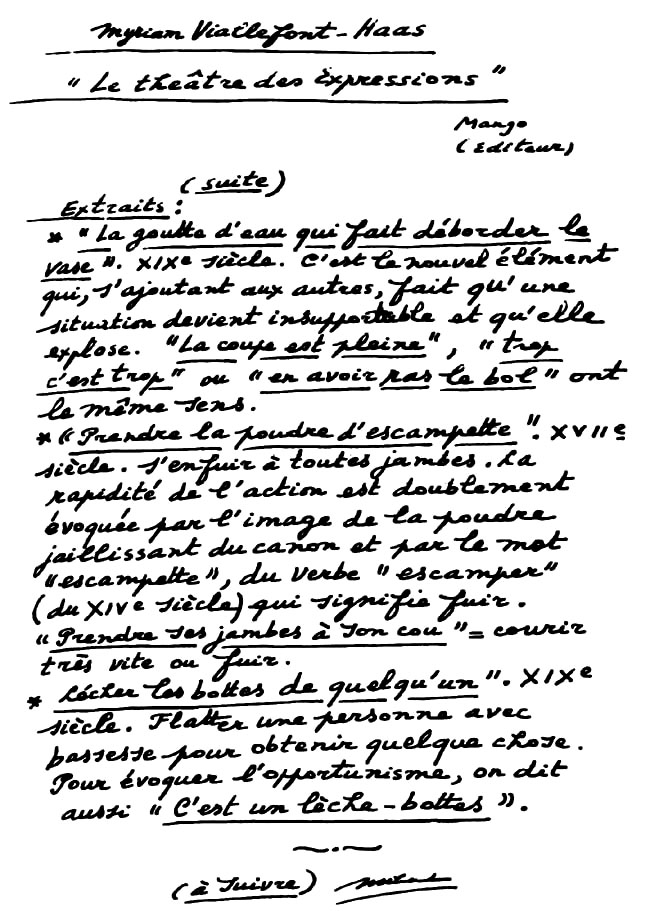 Myriam Viallefont-Haas
"Le théâtre des Expressions"
Mango
(Editeur)
(suite)
Extraits :
* "La goutte d'eau qui fait déborder le
vase". XIXe siècle. C'est le nouvel élément
qui, s'ajoutant aux autres, fait qu'une
situation devient insupportable et qu'elle
explose. "La coupe est pleine", "trop
c'est trop" ou "en avoir ras le bol" ont
le même sens.
* "Prendre la poudre d'escampette". XVIIe
siècle. S'enfuir à toutes jambes. La
rapidité de l'action est doublement
évoquée par l'image de la poudre
jaillissant du canon et par le mot
"escampette", du verbe "escamper"
(du XIVe siècle) qui signifie fuir.
"Prendre ses jambes à son cou" = courir
très vite ou fuir.
* Lécher les bottes de quelqu'un". XIXe
siècle. Flatter une personne avec
bassesse pour obtenir quelque chose.
Pour évoquer l'opportunisme, on dit
aussi "C'est un lèche-bottes".
(à suivre)